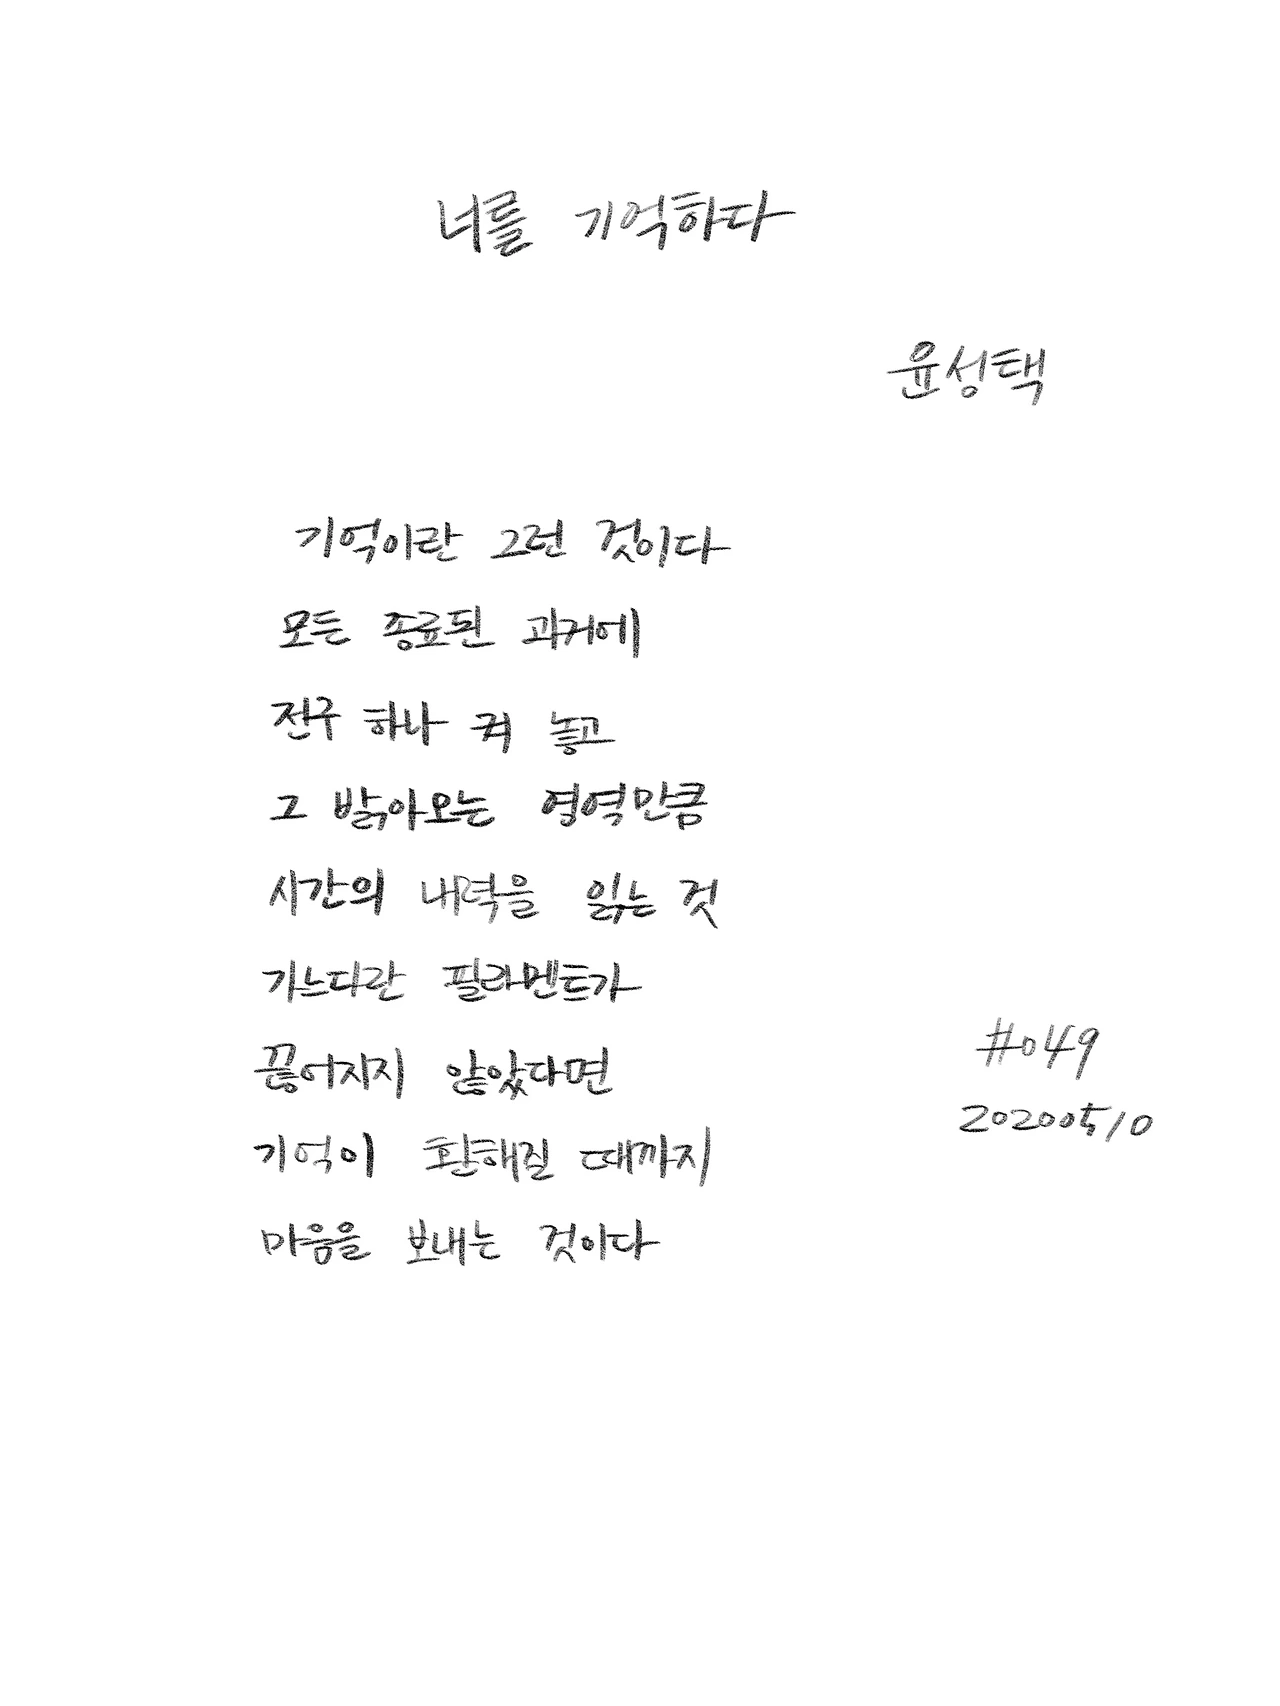 너를 기억하다
윤성택
기억이란 그런 것이다
모든 종료된 과거에
전구 하나 켜 놓고
그 밝아오는 영역만큼
시간의 내력을 읽는 것
기느다란 필라멘트가
끊어지지 않았다면
기억이 환해질 때까지
마음을 보내는 것이다
#049
20200510